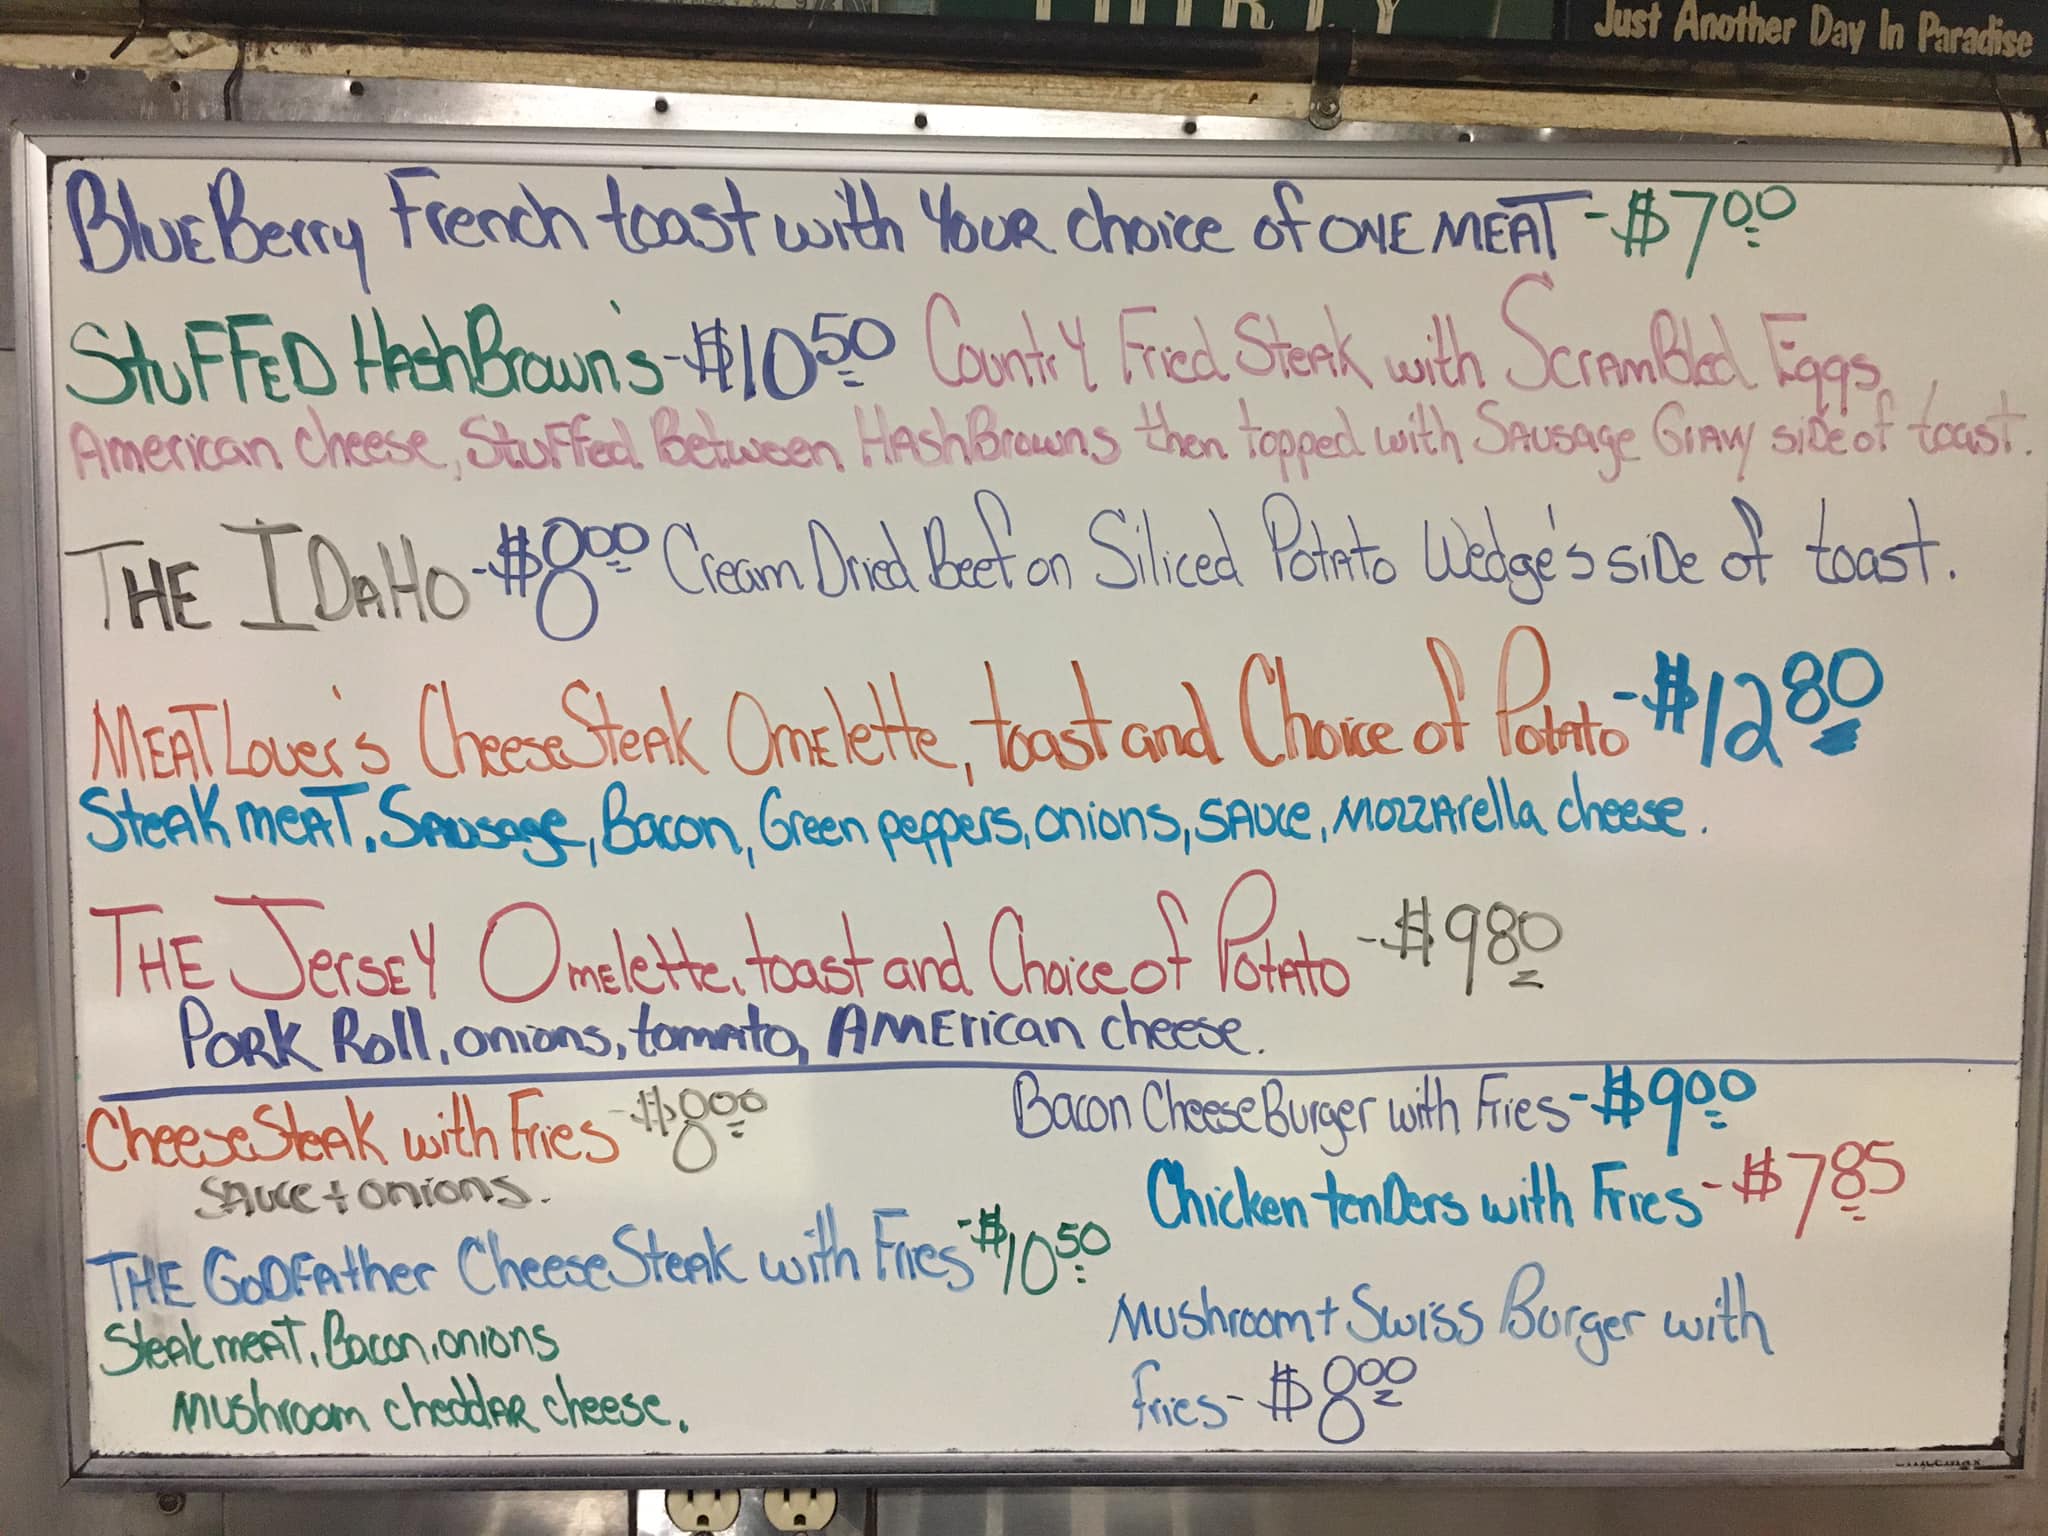 Just Another Day In Paradise
BlueBerry French toast with YOUR choice of ONE MEAT - $7.00
STuFFED HashBrown's - $10.50 Country Fried Steak with Scrambled Eggs,
American cheese, Stuffed Between HashBrowns then topped with Sausage Gravy side of toast.
THE IDaHO - $8.00 Cream Dried Beef on Siliced Potato Wedge's side of toast.
MEAT Lover's CheeseSteak Omelette, toast and Choice of Potato - $12.80
Steak meat, Sausage, Bacon, Green peppers, onions, sauce, mozzarella cheese.
THE Jersey Omelette, toast and Choice of Potato - $9.80
Pork Roll, onions, tomato, American cheese.
CheeseSteak with Fries - $8.00
sauce + onions.
THE GODFAther CheeseSteak with Fries - $10.50
Steak meat, Bacon, onions
Mushroom cheddar cheese.
Bacon CheeseBurger with Fries - $9.00
Chicken tenDers with Fries - $7.85
Mushroom + Swiss Burger with
fries - $8.00